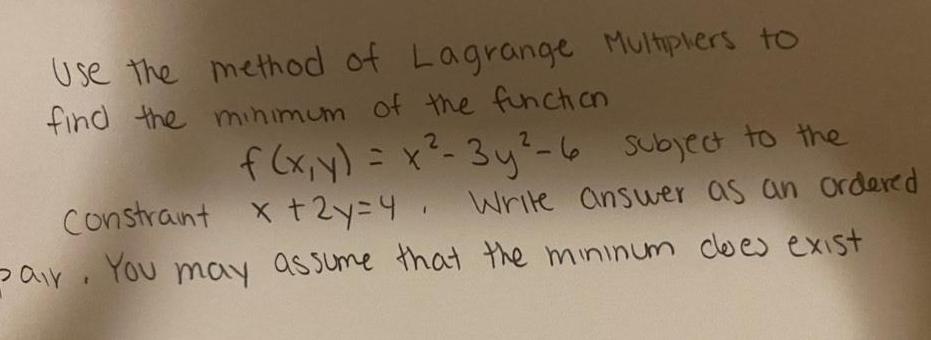 Use the method of Lagrange Multipliers to
find the minimum of the function
f(x,y) = x²-3y²-6 subject to the
Constraint x+2y=4, Write answer as an ordered
pair. You may assume that the mininum does exist